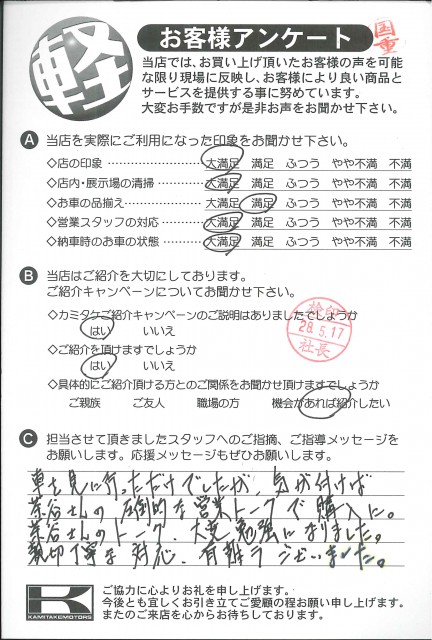 軽
お客様アンケート
国重
当店では、お買い上げ頂いたお客様の声を可能
な限り現場に反映し、お客様により良い商品と
サービスを提供する事に努めています。
大変お手数ですが是非お声をお聞かせ下さい。
A 当店を実際にご利用になった印象をお聞かせ下さい。
◇店の印象 ………………… 大満足 満足 ふつう やや不満 不満
◇店内・展示場の清掃 ……… 大満足 満足 ふつう やや不満 不満
◇お車の品揃え …………… 大満足 満足 ふつう やや不満 不満
◇営業スタッフの対応 ……… 大満足 満足 ふつう やや不満 不満
◇納車時のお車の状態 ……… 大満足 満足 ふつう やや不満 不満
B 当店はご紹介を大切にしております。
ご紹介キャンペーンについてお聞かせ下さい。
◇カミタケご紹介キャンペーンのご説明はありましたでしょうか
はい いいえ
検印
28.5.17
社長
◇ご紹介を頂けますでしょうか
はい いいえ
◇具体的にご紹介頂ける方とのご関係をお聞かせ頂けますでしょうか
ご親族 ご友人 職場の方 機会があれば紹介したい
C 担当させて頂きましたスタッフへのご指摘、ご指導メッセージを
お願いします。応援メッセージもぜひお願いします。
車を見に行っただけでしたが、気が付けば
茶谷さんの圧倒的な営業トークで購入に。
茶谷さんのトーク、大変勉強になりました。
親切丁寧な対応、有難うございました。
K
KAMITAKEMOTORS
ご協力に心よりお礼を申し上げます。
今後とも宜しくお引き立てご愛顧の程お願い申し上げます。
またのご来店を心からお待ちしております。